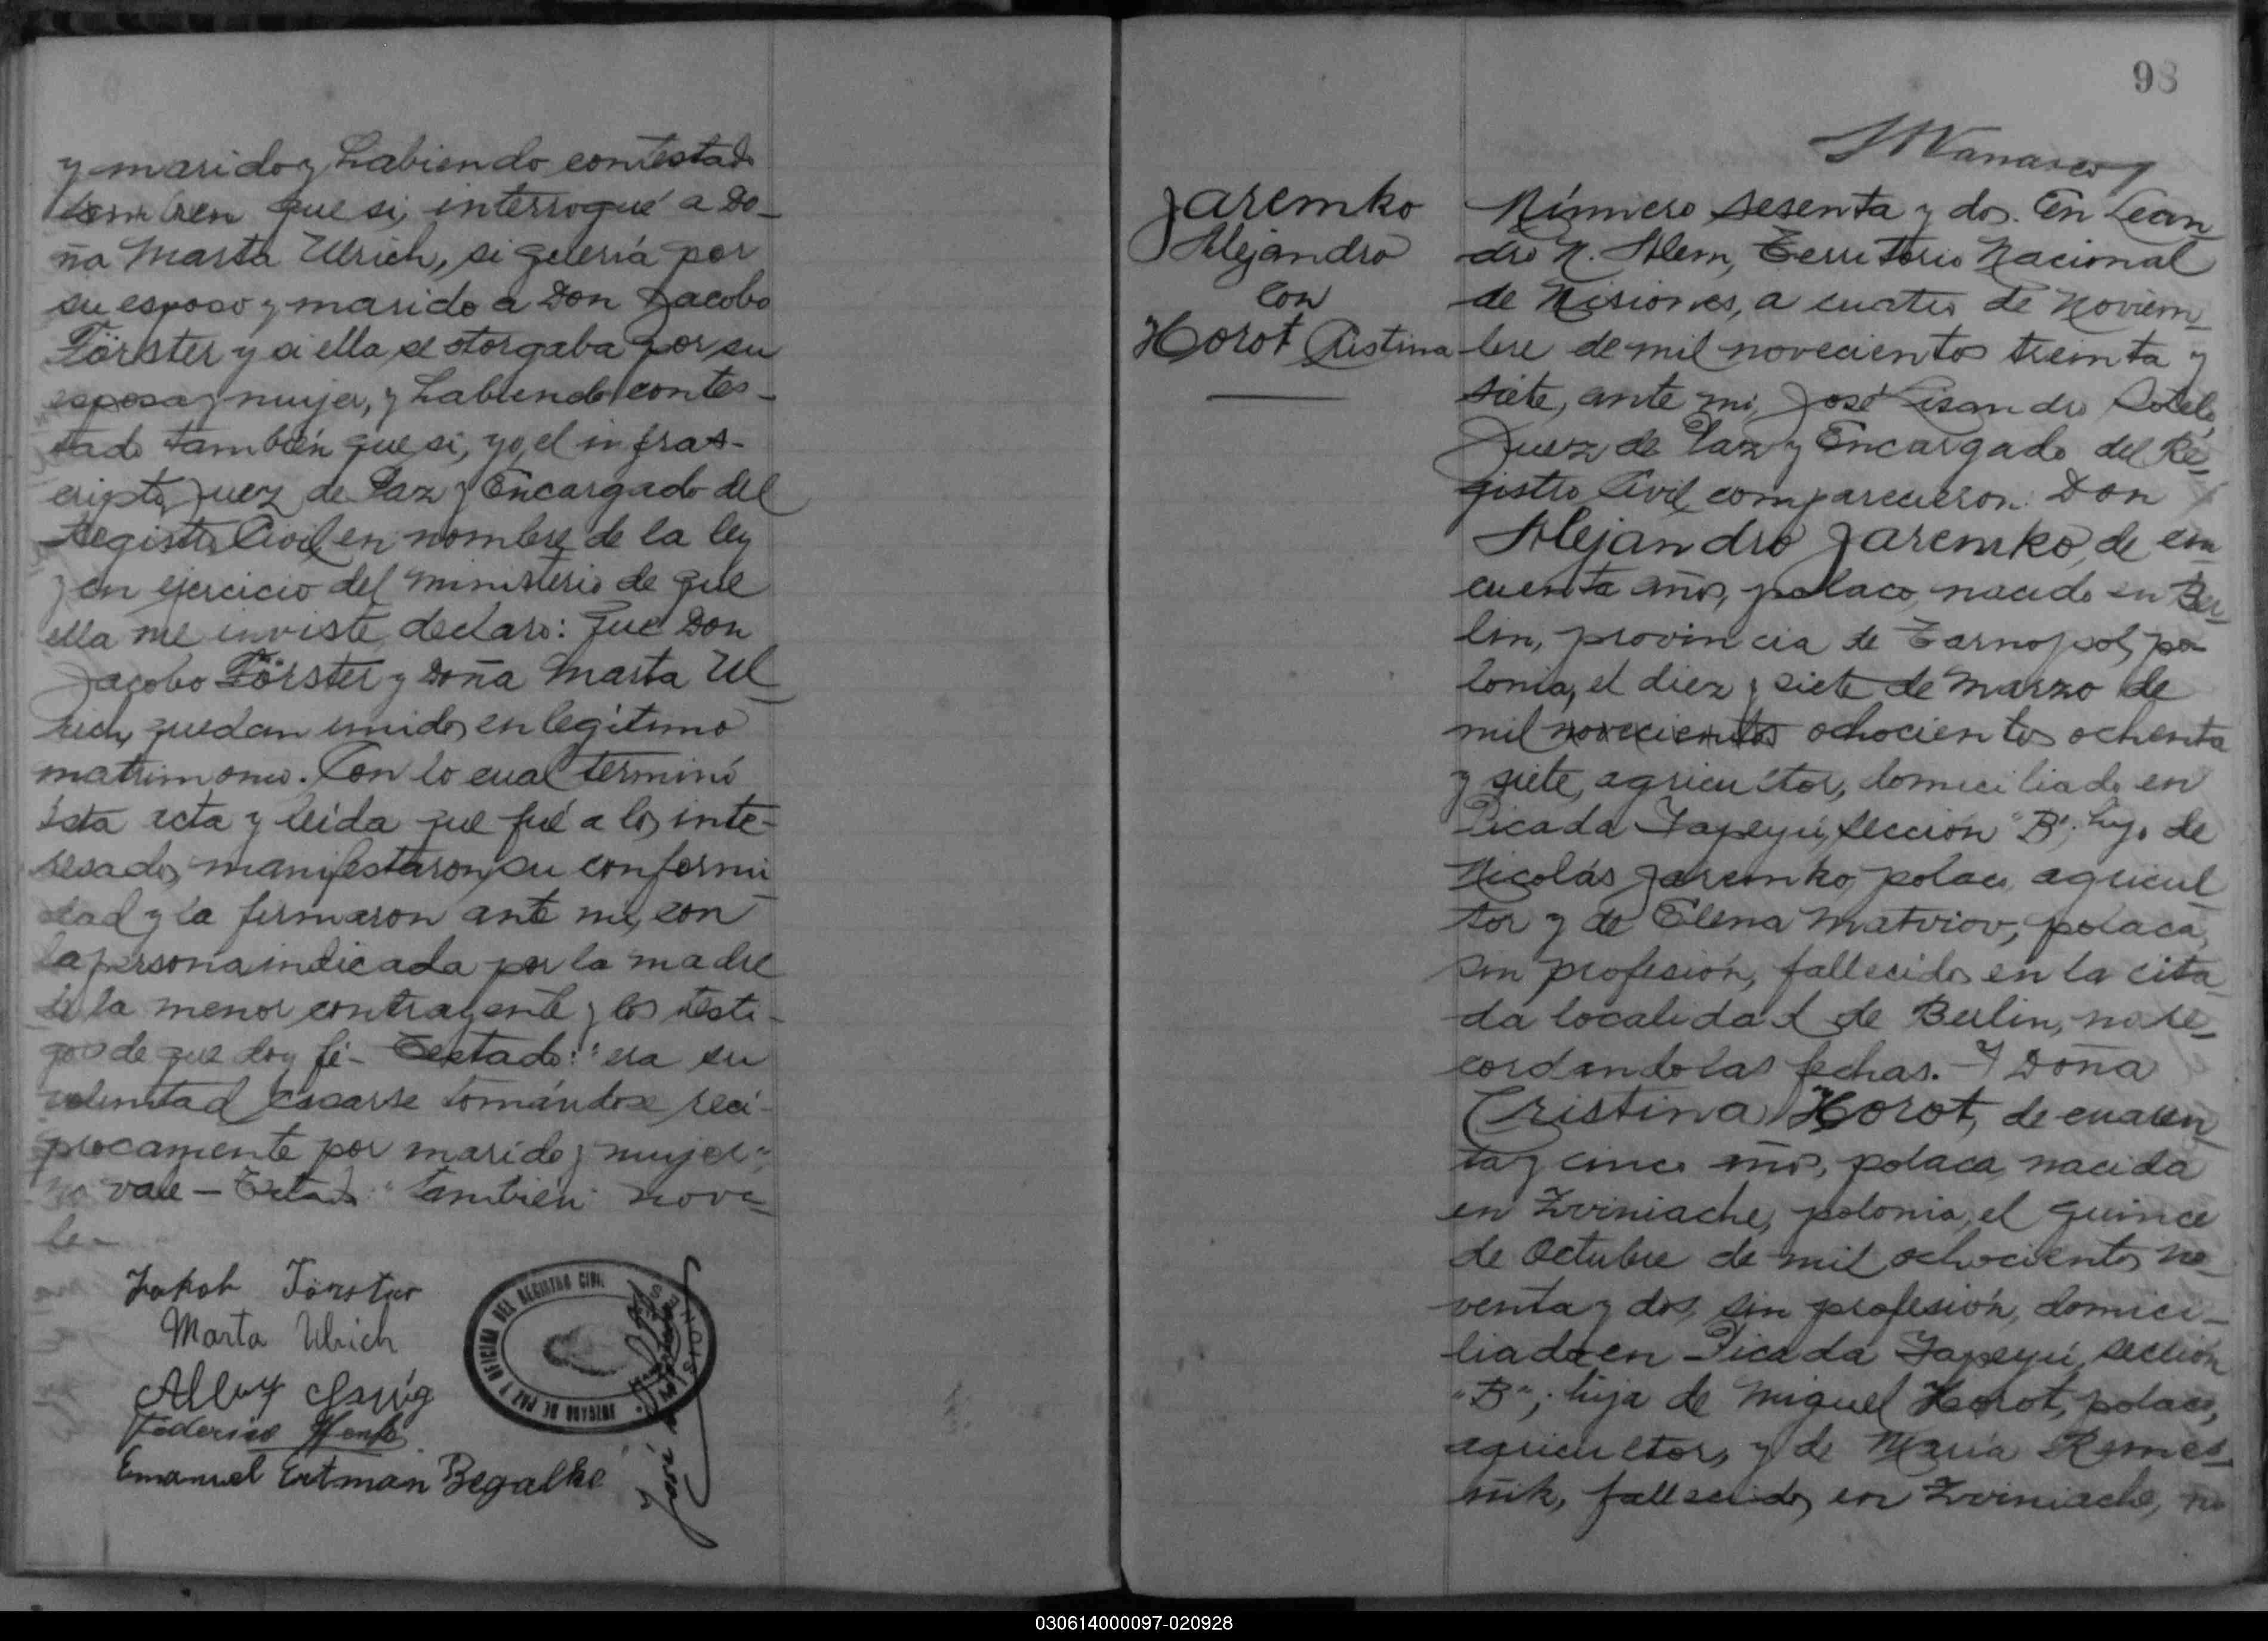 y marido y habiendo contestado
tambien que si, interrogué a Do-
ña Marta Ulrich, si quería por
su esposo y marido a Don Jacobo
Förster y si ella se otorgaba por su
esposa y mujer, y habiendo contes-
tado también que si, yo, el infras-
cripto Juez de Paz y Encargado del
Registro Civil en nombre de la ley
y en ejercicio del ministerio de que
ella me inviste, declaro: Que Don
Jacobo Förster y Doña Marta Ul
rich, quedan unidos en legítimo
matrimonio. Con lo cual terminó
ésta acta y leída que fué a los inte-
resados, manifestaron su conformi
dad y la firmaron ante mi, con
la persona indicada por la madre
de la menor contrayente y los testi-
gos de que doy fé - Testado: "era su
voluntad casarse tomándose reci-
procamente por marido y mujer":
no vale - Testado: "también" no va-
le -
Jakob Förster
Marta Ulrich
Federico
Emanuel Ertman Begalke
JUZGADO DE PAZ Y OFICINA DEL REGISTRO CIVIL
MISIONES
José
98
Jaremko
Alejandro
con
Horot Cristina
Número sesenta y dos. En Lean
dro N. Alem, Territorio Nacional
de Misiones, a cuatro de Noviem-
bre de mil novecientos treinta y
siete, ante mi, José Lisandro Sotelo,
Juez de Paz y Encargado del Re-
gistro Civil, comparecieron: Don
Alejandro Jaremko, de cin
cuenta años, polaco, nacido en Ber-
lin, provincia de Tarnopol, po-
lonia, el diez y siete de Marzo de
mil novecientos ochocientos ochenta
y siete, agricultor, domiciliado en
Picada Yapeyú, sección "B"; hijo de
Nicolás Jaremko, polaco, agricul
tor y de Elena Matviov, polaca,
sin profesión, fallecidos en la cita
da localidad de Berlin, no re-
cordando las fechas. - Y Doña
Cristina Horot, de cuaren
ta y cinco años, polaca, nacida
en Zviniache, polonia, el quince
de Octubre de mil ochocientos no-
venta y dos, sin profesión, domici-
liada en Picada Yapeyú, sección
"B"; hija de Miguel Horot, polaco,
agricultor, y de María Remes-
ñik, fallecidos en Zviniache, no